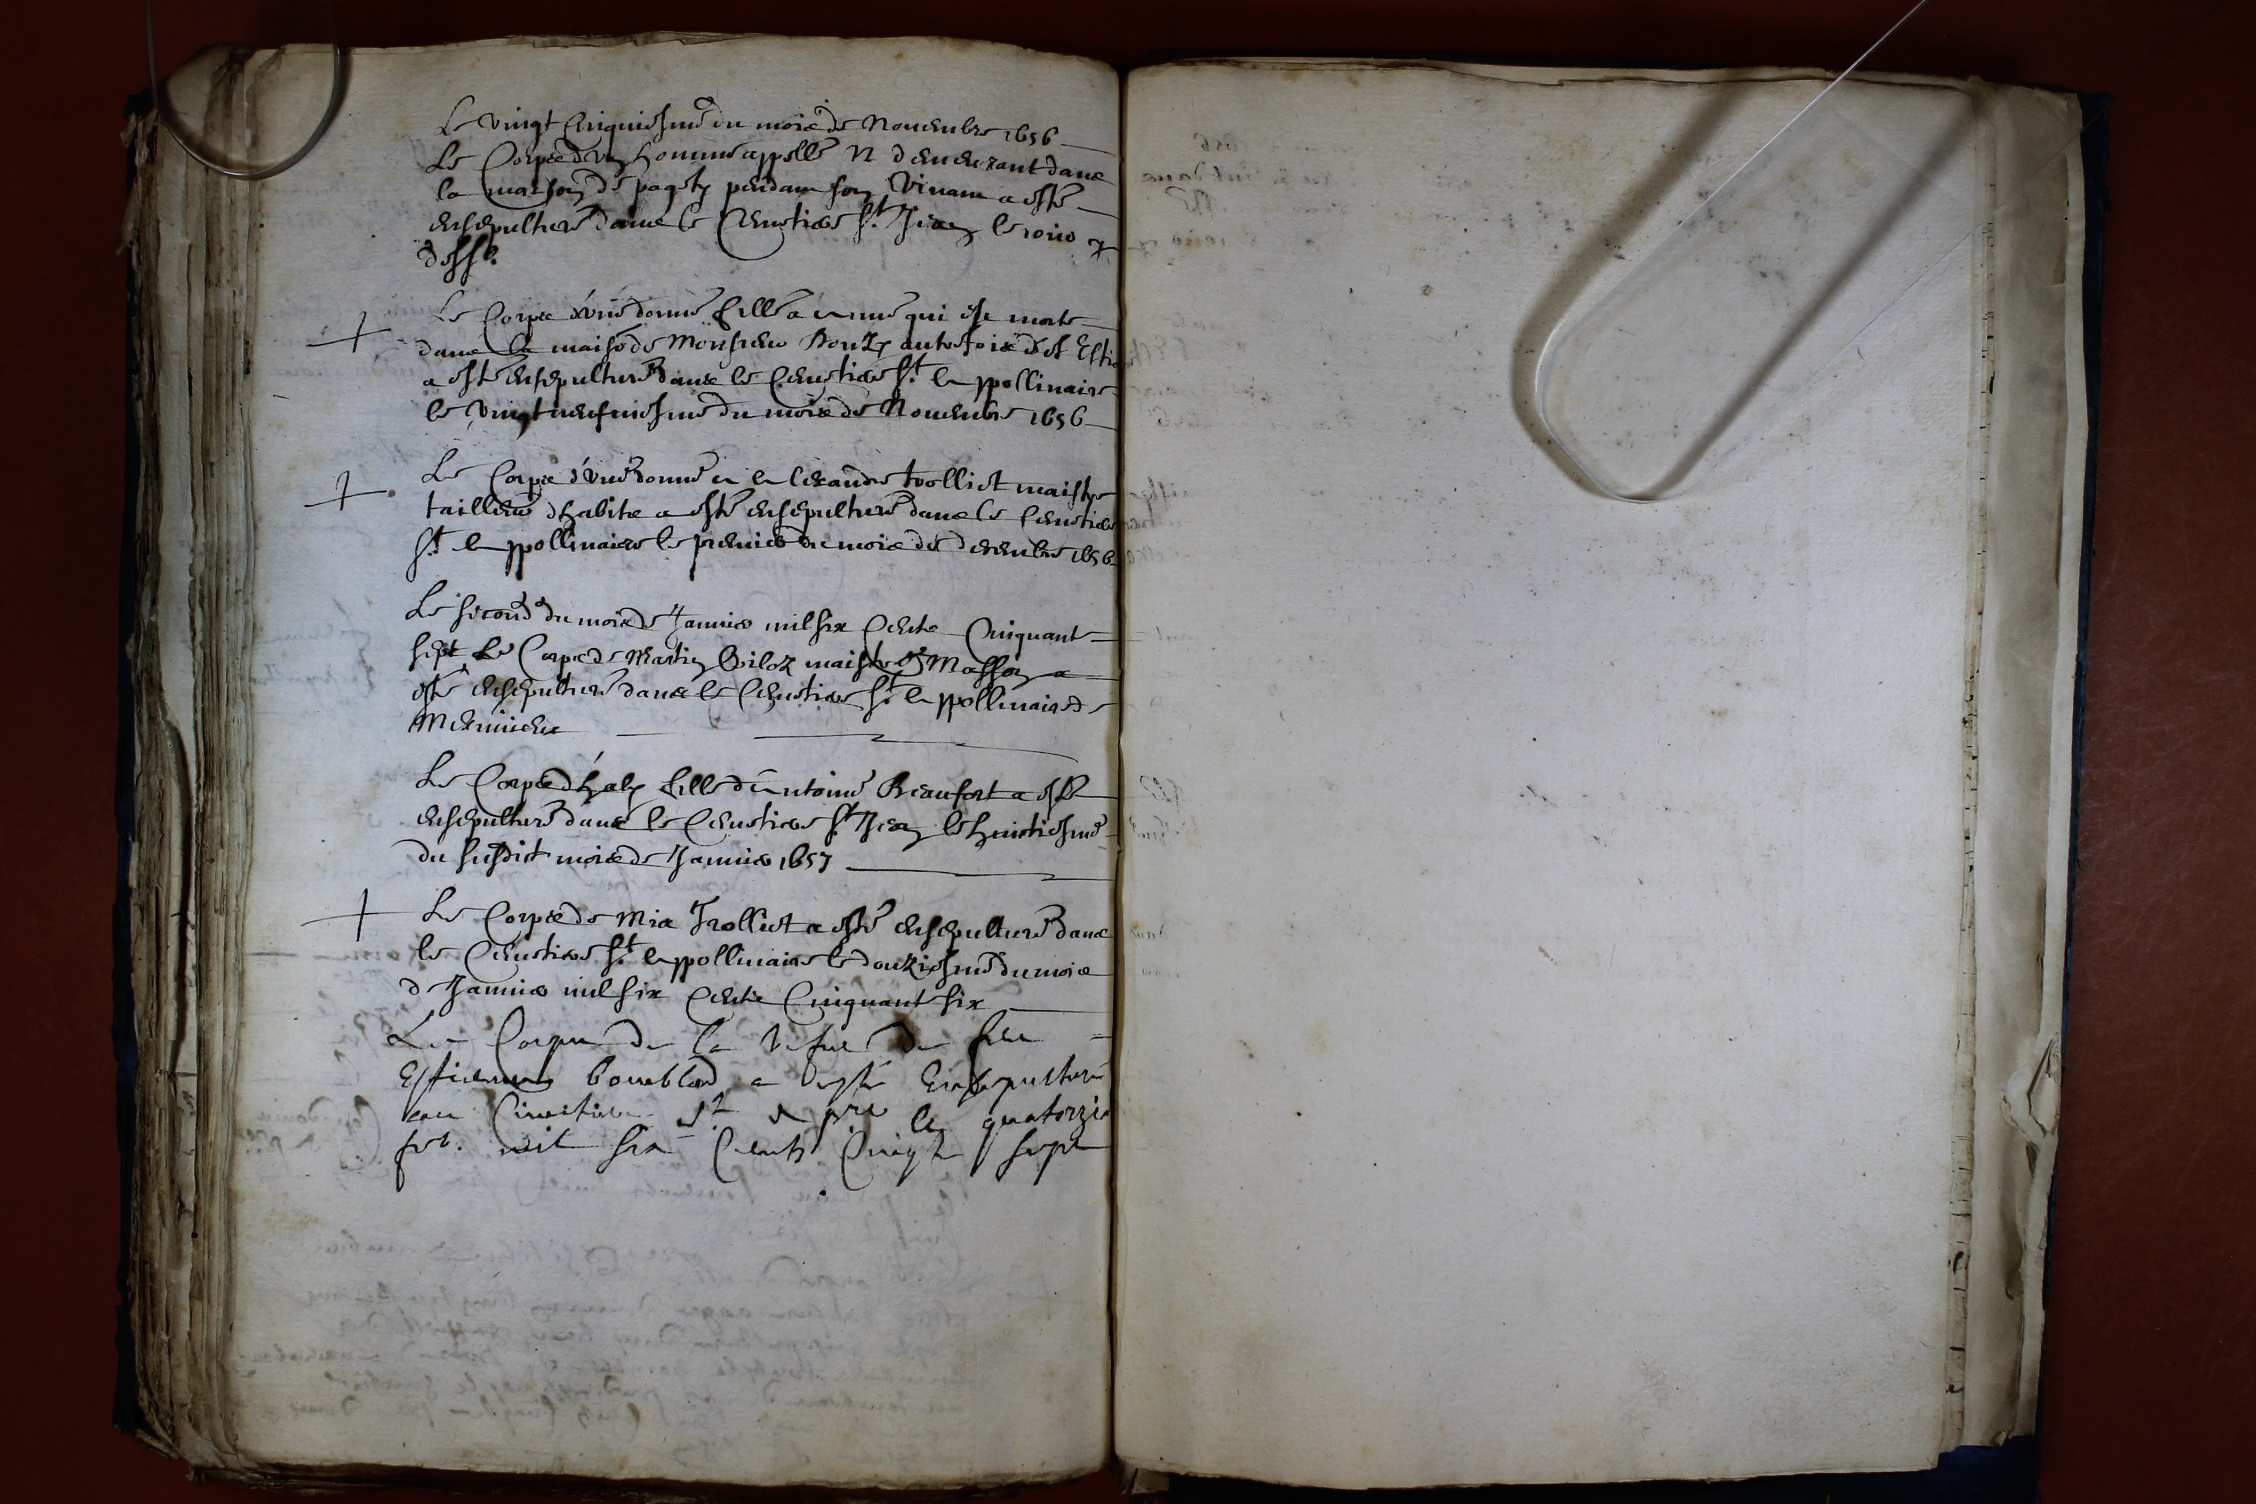 Le vingt cinquiesme du mois de Novembre 1656
Le Corps d'un homme appellé N demeurant dans
la maison de pagets pendant son vivant a esté
ensepulturé dans le Cemetiere St. Jean le jour q
dessus
Le Corps d'une donné fille a une qui est morte
dans la maison de Monsieur autrefois
a esté ensepulturé dans le Cemetiere St. Appollinaire
le vingtneufviesme du mois de Novembre 1656
Le Corps d'une donné a Alexandre trolliet maistre
tailleur d'habits a esté ensepulturé dans le Cemetiere
St. Appollinaire le premier du mois de decembre 1656
Le second du mois de Janvier mil six Cents Cinquant
sept Le Corps de Martin maistre Masson a
esté ensepulturé dans le Cemetiere St. Appollinaire de
Meximieux
Le Corps d' fille d'Antoine Beaufort a esté
ensepulturé dans le Cemetiere St. Jean le huictiesme
du susdict mois de Janvier 1657
Le Corps de Mia Trolliet a esté ensepulturé dans
le Cemetiere St. Appollinaire le douziesme du mois
de Janvier mil six Cents Cinquant six
Le Corps de la vefve de feu
Estienne a esté Ensepulturé
au Cimetiere St. le quatorze
feb. mil six Cents Cinqte sept